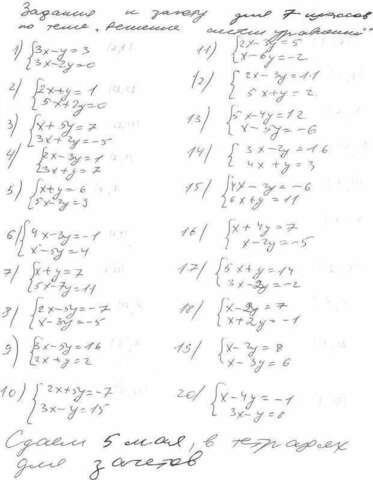 Задания к зачету для 7 классов
по теме „Решение систем уравнений"
1) {3x-y=3
3x-2y=0
2) {2x+y=1
5x+2y=0
3) {x+5y=7
3x+2y=-5
4) {2x-3y=1
3x+y=7
5) {x+y=6
5x-2y=9
6) {4x-3y=-1
x-5y=4
7) {x+y=7
5x-7y=11
8) {2x-5y=-7
x-3y=-5
9) {3x-5y=16
2x+y=2
10) {2x+5y=-7
3x-y=15
11) {2x-3y=5
x-6y=-2
12) {2x-3y=11
5x+y=2
13) {5x-4y=12
x-5y=-6
14) {3x-2y=16
4x+y=3
15) {4x-3y=-6
6x+y=11
16) {x+4y=7
x-2y=-5
17) {5x+y=14
3x-2y=-2
18) {x-2y=7
x+2y=-1
19) {x-2y=8
x-3y=6
20) {x-4y=-1
3x-y=8
Сдаем 5 мая, в тетрадях
для зачетов